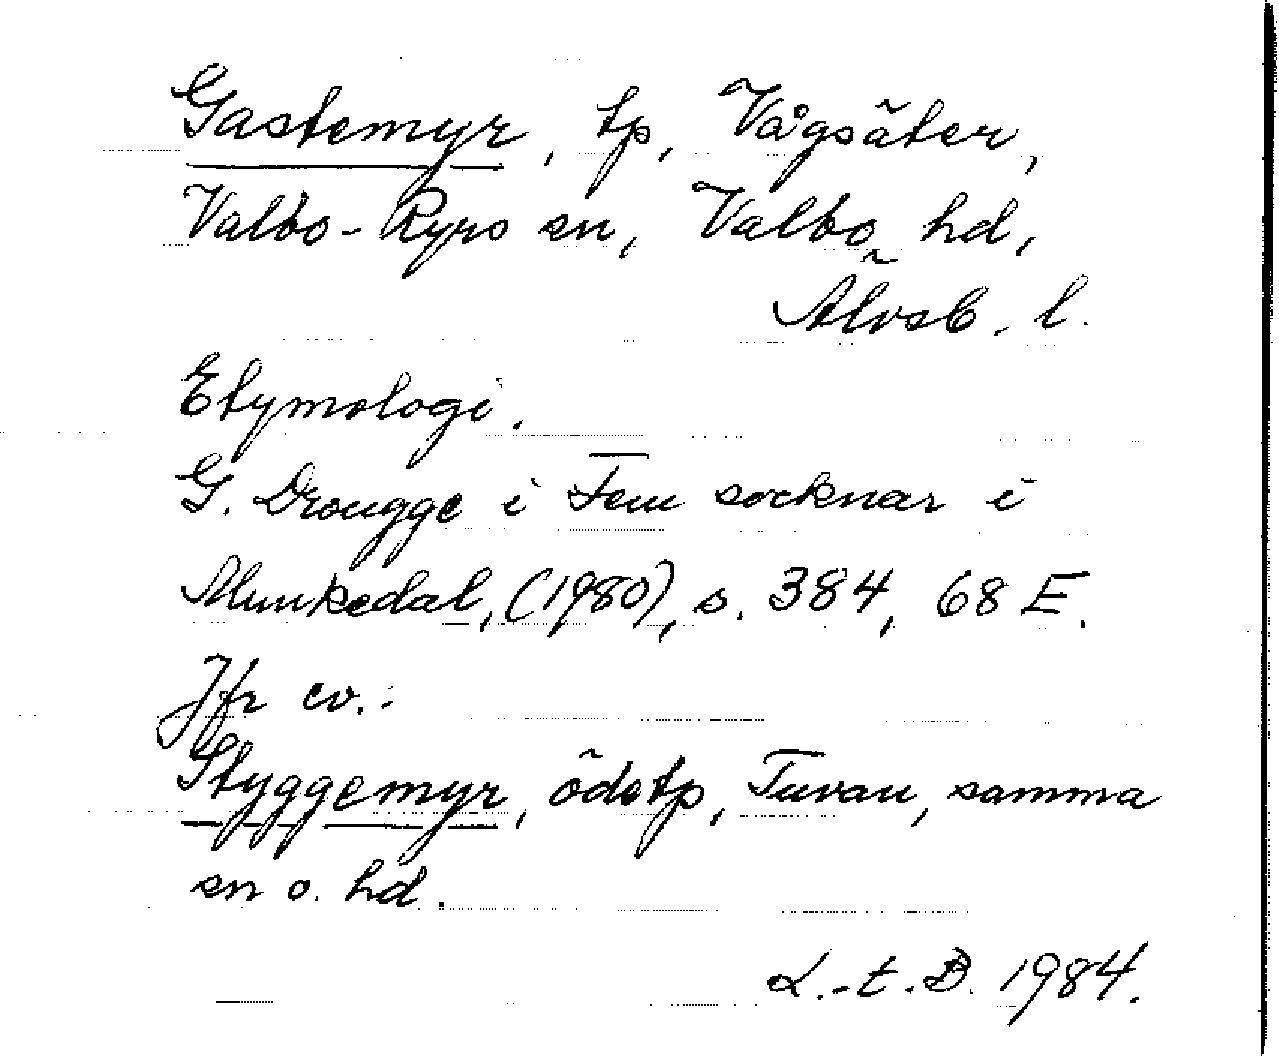 Gastemyr, tp, Vågsäter,
Valbo-Ryrs sn, Valbo hd,
Älvsb. l.
Etymologi.
G. Drougge i Fem socknar i
Munkedal, (1980), s. 384, 68 E.
Jfr ev.:
Styggemyr, ödetp, Tuvan, samma
sn o. hd.
L.-t. B. 1984.